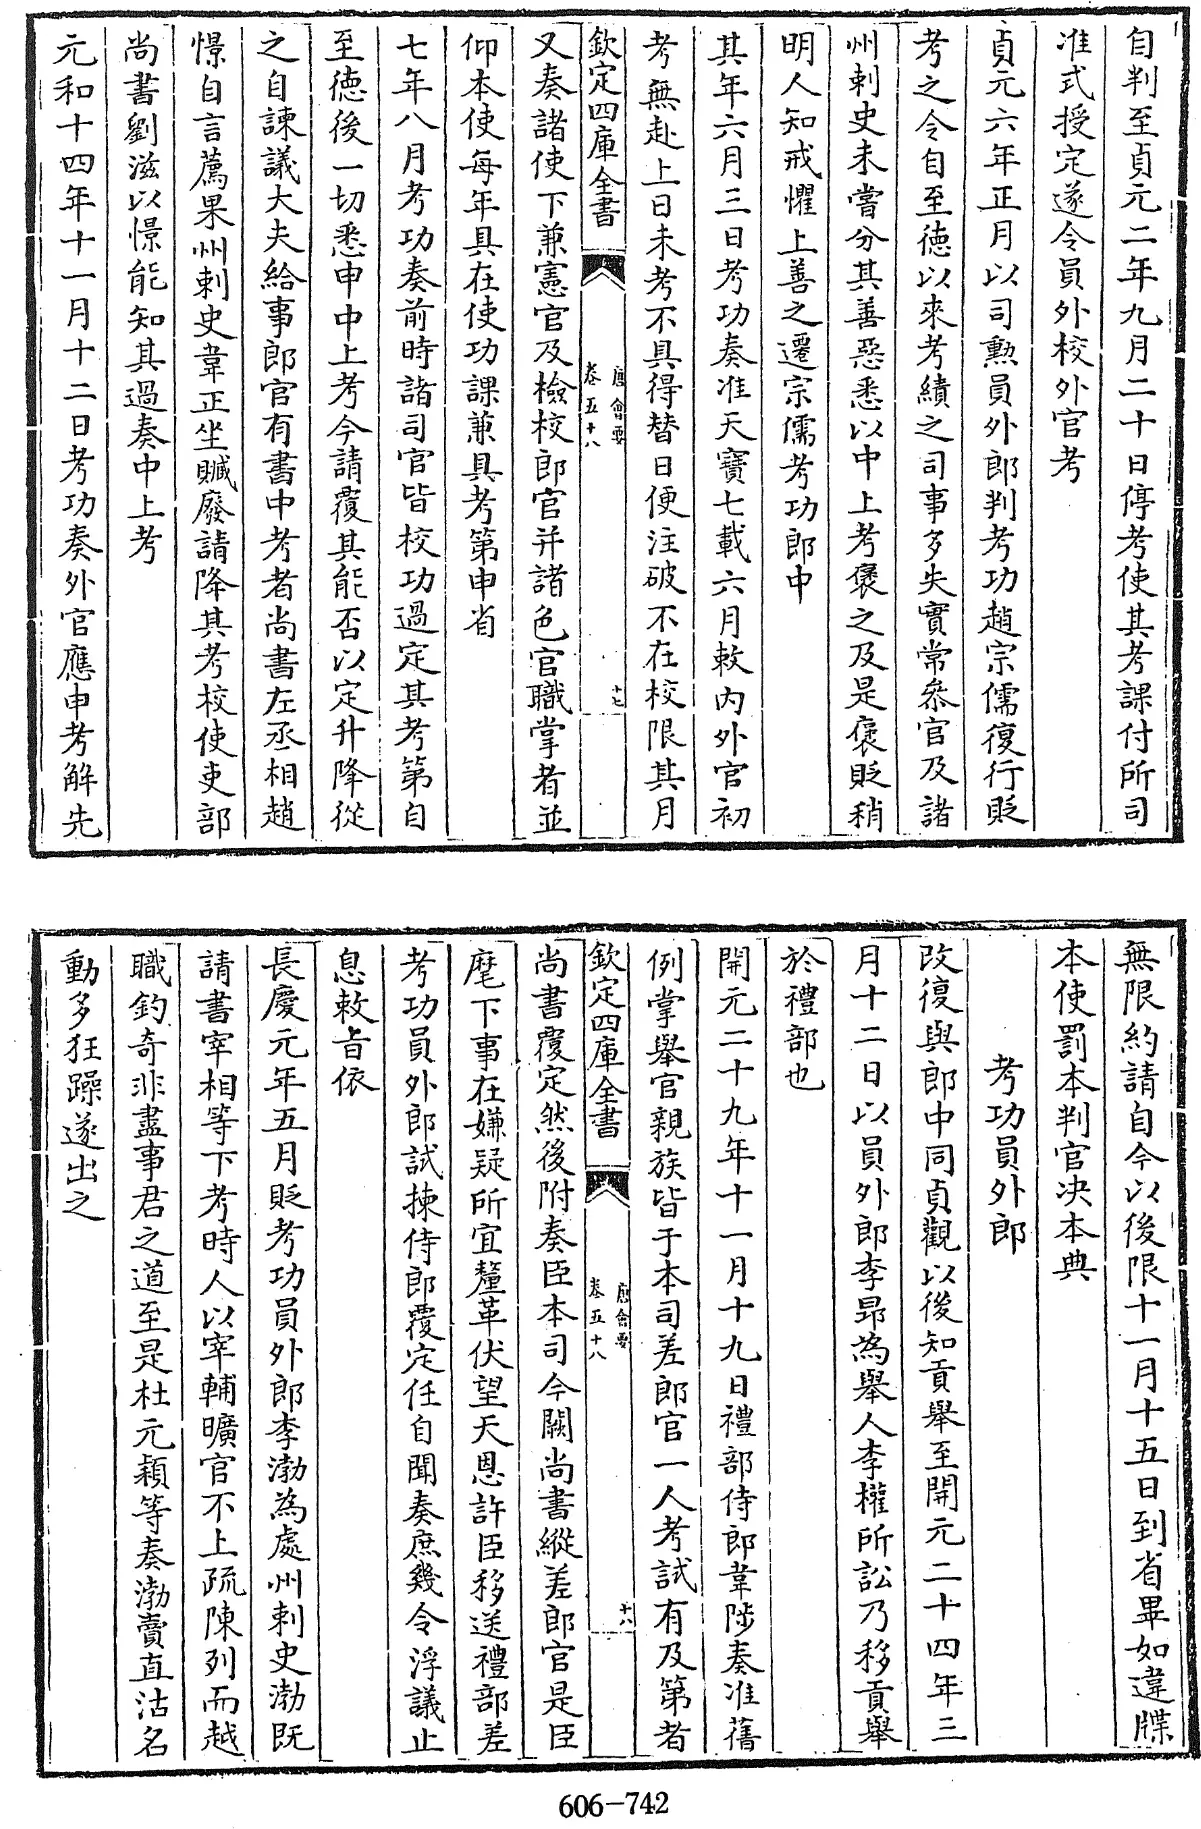 自判至貞元二年九月二十日停考使其考課付所司
准式授定遂令員外校外官考
貞元六年正月以司勲員外郎判考功趙宗儒復行貶
考之令自至徳以來考績之司事多失實常叅官及諸
州刺史未嘗分其善惡悉以中上考褒之及是褒貶稍
明人知戒懼上善之遷宗儒考功郎中
其年六月三日考功奏准天寳七載六月敕内外官初
考無赴上日未考不具得替日便注破不在校限其月
欽定四庫全書
唐會要
卷五十八
十七
又奏諸使下兼憲官及檢校郎官并諸色官職掌者並
仰本使每年具在使功課兼具考第申省
七年八月考功奏前時諸司官皆校功過定其考第自
至徳後一切悉申中上考今請覆其能否以定升降從
之自諫議大夫給事郎官有書中考者尚書左丞相趙
憬自言薦果州刺史韋正坐贓廢請降其考校使吏部
尚書劉滋以憬能知其過奏中上考
元和十四年十一月十二日考功奏外官應申考解先
無限約請自今以後限十一月十五日到省畢如違牒
本使罰本判官决本典
考功員外郎
改復與郎中同貞觀以後知貢舉至開元二十四年三
月十二日以員外郎李昻為舉人李權所訟乃移貢舉
於禮部也
開元二十九年十一月十九日禮部侍郎韋陟奏准舊
例掌舉官親族皆于本司差郎官一人考試有及第者
欽定四庫全書
唐會要
卷五十八
十八
尚書覆定然後附奏臣本司今闕尚書縱差郎官是臣
麾下事在嫌疑所宜釐革伏望天恩許臣移送禮部差
考功員外郎試揀侍郎覆定任自聞奏庶幾令浮議止
息敕旨依
長慶元年五月貶考功員外郎李渤為處州刺史渤既
請書宰相等下考時人以宰輔曠官不上疏陳列而越
職釣奇非盡事君之道至是杜元穎等奏渤賣直沽名
動多狂躁遂出之
606-742